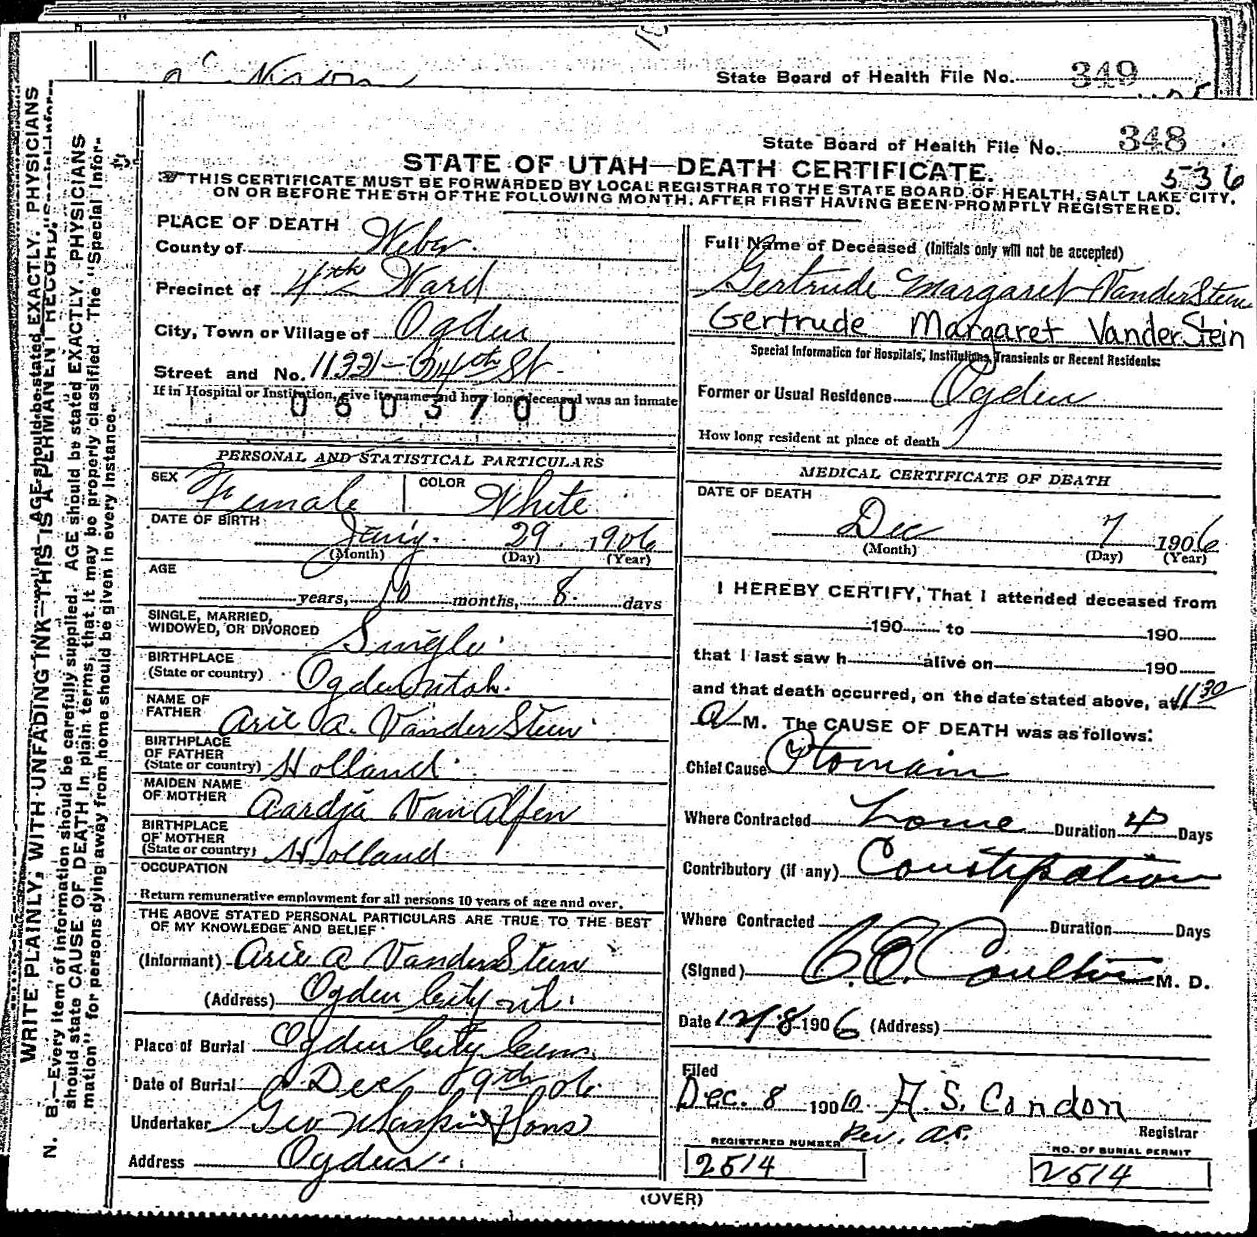 State Board of Health File No. 349
State Board of Health File No. 348
536
STATE OF UTAH—DEATH CERTIFICATE.
THIS CERTIFICATE MUST BE FORWARDED BY LOCAL REGISTRAR TO THE STATE BOARD OF HEALTH, SALT LAKE CITY,
ON OR BEFORE THE 5TH OF THE FOLLOWING MONTH, AFTER FIRST HAVING BEEN PROMPTLY REGISTERED.
WRITE PLAINLY, WITH UNFADING INK—THIS IS A PERMANENT RECORD.
N. B.—Every item of information should be carefully supplied. AGE should be stated EXACTLY. PHYSICIANS
should state CAUSE OF DEATH in plain terms, that it may be properly classified. The "Special Infor-
mation" for persons dying away from home should be given in every instance.
PLACE OF DEATH
County of Weber
Precinct of 4th Ward
City, Town or Village of Ogden
Street and No. 1132 - 24th St
If in Hospital or Institution, give its name and how long deceased was an inmate
0603700
PERSONAL AND STATISTICAL PARTICULARS
SEX Female COLOR White
DATE OF BIRTH Jany. 29 1906
(Month) (Day) (Year)
AGE
years, 10 months, 8 days
SINGLE, MARRIED,
WIDOWED, OR DIVORCED Single
BIRTHPLACE
(State or country) Ogden Utah.
NAME OF
FATHER Arie A. VanderStein
BIRTHPLACE
OF FATHER
(State or country) Holland
MAIDEN NAME
OF MOTHER Aardja VanAlfen
BIRTHPLACE
OF MOTHER
(State or country) Holland
OCCUPATION
Return remunerative employment for all persons 10 years of age and over.
THE ABOVE STATED PERSONAL PARTICULARS ARE TRUE TO THE BEST
OF MY KNOWLEDGE AND BELIEF
(Informant) Arie A VanderStein
(Address) Ogden City ut.
Place of Burial Ogden City Cem.
Date of Burial Dec 9th 06
Undertaker Geo & Sons
Address Ogden
Full Name of Deceased (Initials only will not be accepted)
Gertrude Margaret VanderStein
Gertrude Margaret VanderStein
Special Information for Hospitals, Institutions, Transients or Recent Residents:
Former or Usual Residence Ogden
How long resident at place of death
MEDICAL CERTIFICATE OF DEATH
DATE OF DEATH
Dec 7 1906
(Month) (Day) (Year)
I HEREBY CERTIFY, That I attended deceased from
190 to 190
that I last saw h alive on 190
and that death occurred, on the date stated above, at 11 30
A M. The CAUSE OF DEATH was as follows:
Chief Cause Ptomain
Where Contracted Home Duration 4 Days
Contributory (if any) Constipation
Where Contracted Duration Days
(Signed) Coulter M. D.
Date 12/8 1906 (Address)
Filed
Dec. 8 1906 A. S. Condon
Registrar
REGISTERED NUMBER
2514
NO. OF BURIAL PERMIT
2514
(OVER)